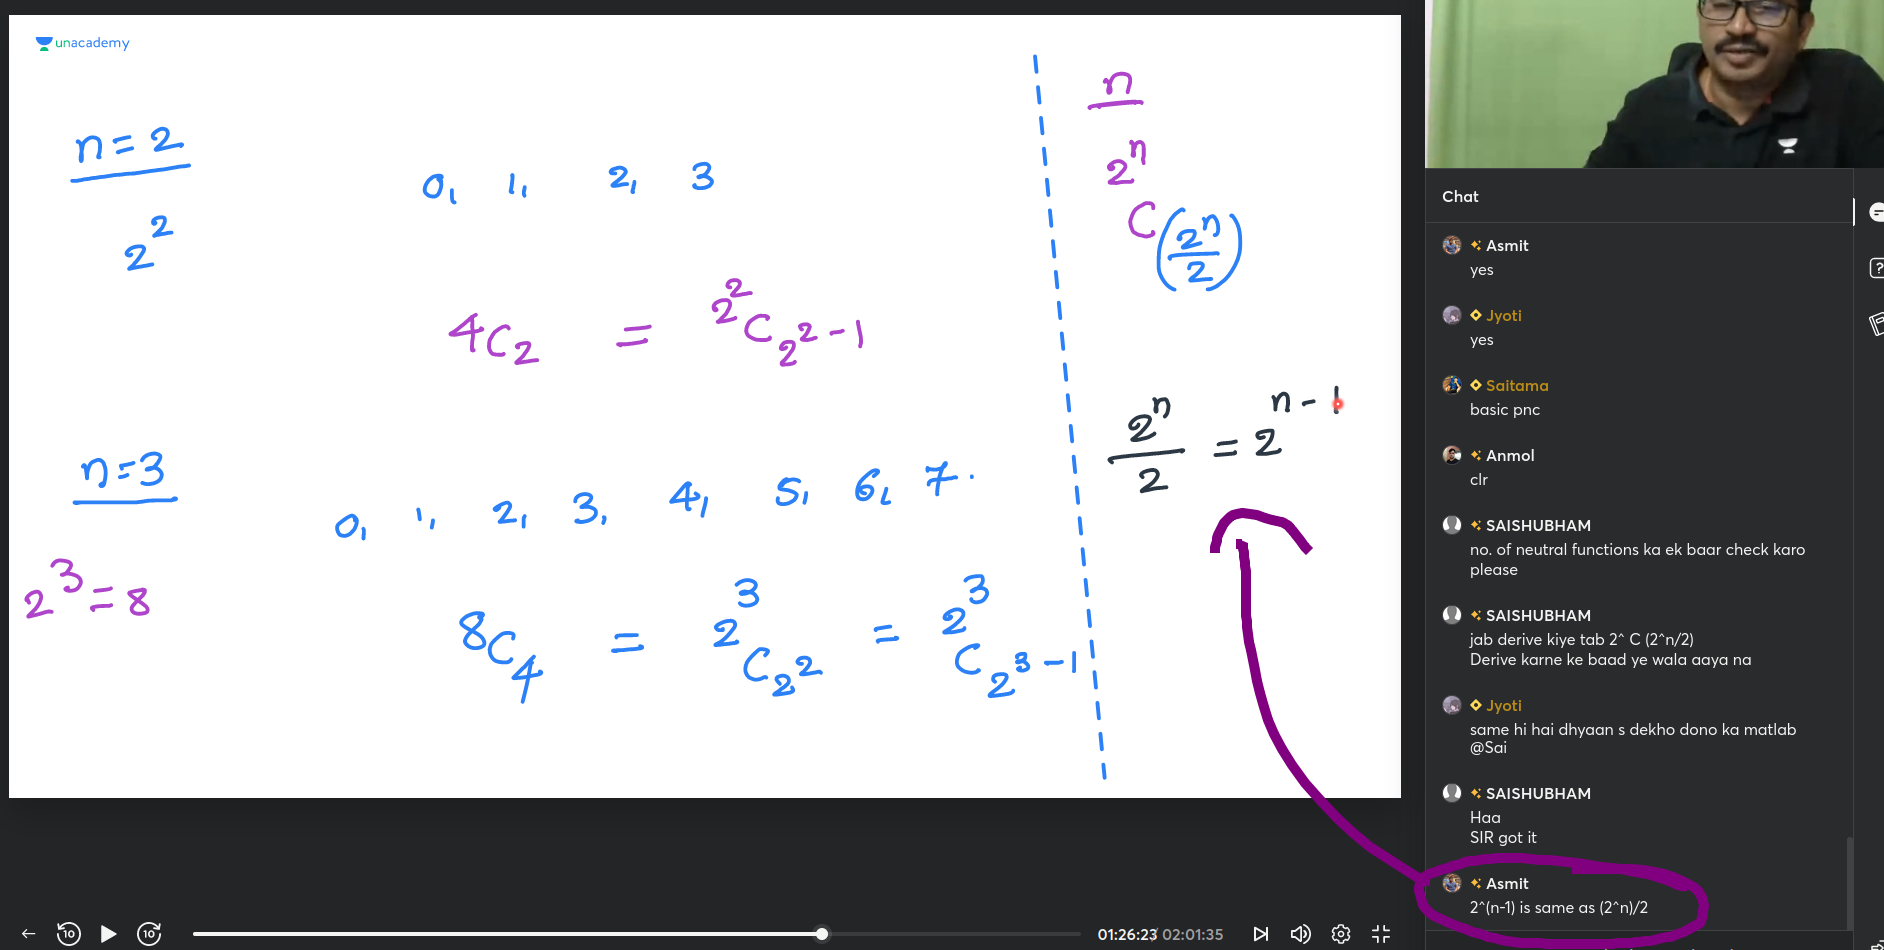 unacademy
n = 2
0, 1, 2, 3
2^2
4C2 = 2^2 C 2^2-1
n=3
0, 1, 2, 3, 4, 5, 6, 7.
2^3 = 8
8C4 = 2^3 C 2^2 = 2^3 C 2^3-1
n
2^n
C (2^n/2)
2^n/2 = 2^n-1
Chat
Asmit
yes
Jyoti
yes
Saitama
basic pnc
Anmol
clr
SAISHUBHAM
no. of neutral functions ka ek baar check karo
please
SAISHUBHAM
jab derive kiye tab 2^ C (2^n/2)
Derive karne ke baad ye wala aaya na
Jyoti
same hi hai dhyaan s dekho dono ka matlab
@Sai
SAISHUBHAM
Haa
SIR got it
Asmit
2^(n-1) is same as (2^n)/2
10 10 01:26:23 / 02:01:35